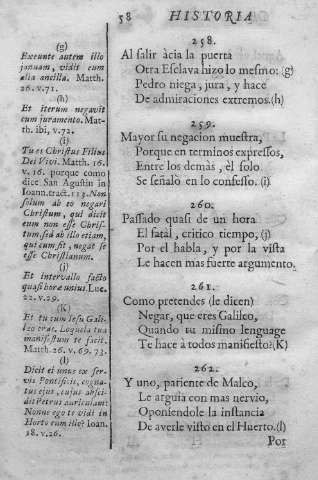 58 HISTORIA
(g)
Exeunte autem illo
januam, vidit eum
alia ancilla. Matth.
26. v. 71.
(h)
Et iterum negavit
cum juramento. Mat-
th. ibi, v. 72.
(i)
Tu es Christus Filius
Dei Vivi. Matth. 16.
v. 16. porque como
dice San Agustin in
Ioann. tract. 113. Non
solum ab eo negari
Christum, qui dicit
eum non esse Chris-
tum, sed ab illo etiam,
qui cum sit, negat se
esse Christianum.
(j)
Et intervallo facto
quasi horæ unius. Luc.
22. v. 29.
(K)
Et tu cum Iesu Gali-
læo eras. Loquela tua
manifestum te facit.
Matth. 26. v. 69. 73.
(l)
Dicit ei unus ex ser-
vis Pontificis, cogna-
tus ejus, cujus absci-
dit Petrus auriculam:
Nonne ego te vidi in
Horto cum illo? Ioan.
18. v. 26.
258.
Al salir àcia la puerta
Otra Esclava hizo lo mesmo: (g)
Pedro niega, jura, y hace
De admiraciones extremos. (h)
259.
Mayor su negacion muestra,
Porque en terminos expressos,
Entre los demàs, èl solo
Se señalò en lo confesso. (i)
260.
Passado quasi de un hora
El fatal, critico tiempo, (j)
Por el habla, y por la vista
Le hacen mas fuerte argumento.
261.
Como pretendes (le dicen)
Negar, que eres Galileo,
Quando tu mismo lenguage
Te hace à todos manifiesto? (K)
262.
Y uno, pariente de Malco,
Le arguìa con mas nervio,
Oponiendole la instancia
De averle visto en el Huerto. (l)
Por